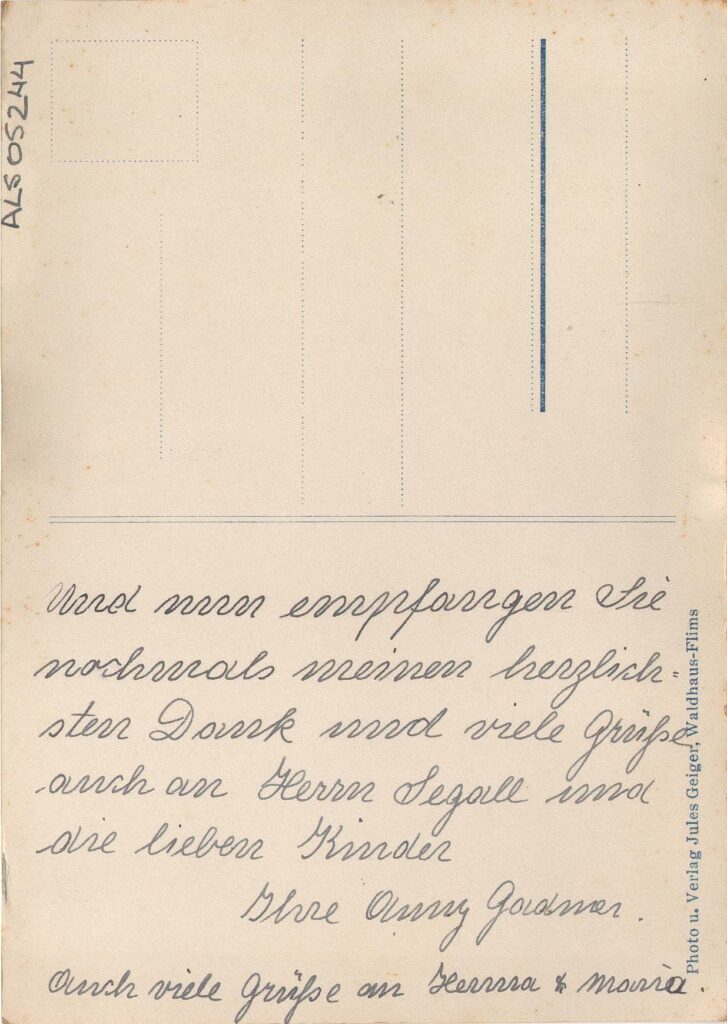 ALS 05244
Und nun empfangen Sie
nochmals meinen herzlich=
sten Dank und viele Grüße
auch an Herrn Segall und
die lieben Kinder
Ihre Anny Gadmer.
Auch viele Grüße an Herma & Maria.
Photo u. Verlag Jules Geiger, Waldhaus-Flims